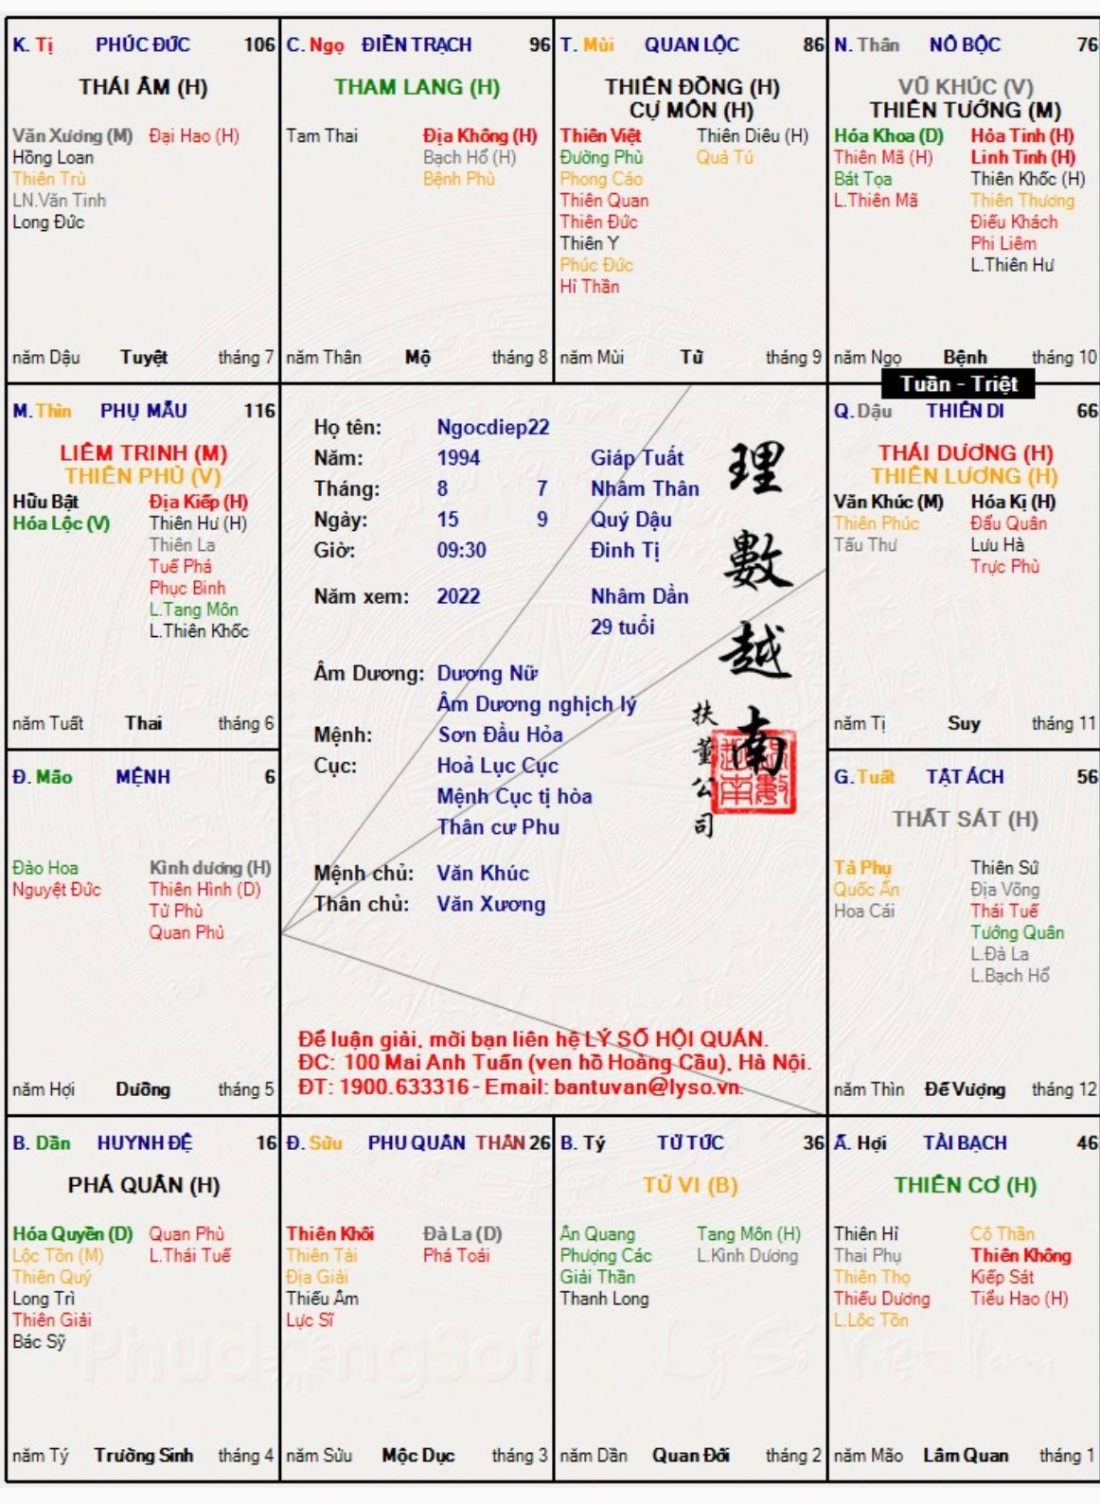 K. Tị PHÚC ĐỨC 106
THÁI ÂM (H)
Văn Xương (M) Đại Hao (H)
Hồng Loan
Thiên Trù
LN.Văn Tinh
Long Đức
năm Dậu Tuyệt tháng 7
C. Ngọ ĐIỀN TRẠCH 96
THAM LANG (H)
Tam Thai Địa Không (H)
Bạch Hổ (H)
Bệnh Phù
năm Thân Mộ tháng 8
T. Mùi QUAN LỘC 86
THIÊN ĐỒNG (H)
CỰ MÔN (H)
Thiên Việt Thiên Diêu (H)
Đường Phù Quả Tú
Phong Cáo
Thiên Quan
Thiên Đức
Thiên Y
Phúc Đức
Hỉ Thần
năm Mùi Tử tháng 9
N. Thân NÔ BỘC 76
VŨ KHÚC (V)
THIÊN TƯỚNG (M)
Hóa Khoa (D) Hỏa Tinh (H)
Thiên Mã (H) Linh Tinh (H)
Bát Tọa Thiên Khốc (H)
L.Thiên Mã Thiên Thương
Điếu Khách
Phi Liêm
L.Thiên Hư
năm Ngọ Bệnh tháng 10
Tuần - Triệt
M. Thìn PHỤ MẪU 116
LIÊM TRINH (M)
THIÊN PHỦ (V)
Hữu Bật Địa Kiếp (H)
Hóa Lộc (V) Thiên Hư (H)
Thiên La
Tuế Phá
Phục Binh
L.Tang Môn
L.Thiên Khốc
năm Tuất Thai tháng 6
Họ tên: Ngocdiep22
Năm: 1994 Giáp Tuất
Tháng: 8 7 Nhâm Thân
Ngày: 15 9 Quý Dậu
Giờ: 09:30 Đinh Tị
Năm xem: 2022 Nhâm Dần
29 tuổi
Âm Dương: Dương Nữ
Âm Dương nghịch lý
Mệnh: Sơn Đầu Hỏa
Cục: Hoả Lục Cục
Mệnh Cục tị hòa
Thân cư Phu
Mệnh chủ: Văn Khúc
Thân chủ: Văn Xương
理數越南
扶董公司
Để luận giải, mời bạn liên hệ LÝ SỐ HỘI QUÁN.
ĐC: 100 Mai Anh Tuấn (ven hồ Hoàng Cầu), Hà Nội.
ĐT: 1900.633316 - Email: bantuvan@lyso.vn.
Q. Dậu THIÊN DI 66
THÁI DƯƠNG (H)
THIÊN LƯƠNG (H)
Văn Khúc (M) Hóa Kị (H)
Thiên Phúc Đẩu Quân
Tấu Thư Lưu Hà
Trực Phù
năm Tị Suy tháng 11
Đ. Mão MỆNH 6
Đào Hoa Kình dương (H)
Nguyệt Đức Thiên Hình (D)
Tử Phù
Quan Phủ
năm Hợi Dưỡng tháng 5
G. Tuất TẬT ÁCH 56
THẤT SÁT (H)
Tả Phụ Thiên Sứ
Quốc Ấn Địa Võng
Hoa Cái Thái Tuế
Tướng Quân
L.Đà La
L.Bạch Hổ
năm Thìn Đế Vượng tháng 12
B. Dần HUYNH ĐỆ 16
PHÁ QUÂN (H)
Hóa Quyền (D) Quan Phù
Lộc Tồn (M) L.Thái Tuế
Thiên Quý
Long Trì
Thiên Giải
Bác Sỹ
năm Tý Trường Sinh tháng 4
Đ. Sửu PHU QUÂN THÂN 26
Thiên Khôi Đà La (D)
Thiên Tài Phá Toái
Địa Giải
Thiếu Âm
Lực Sĩ
năm Sửu Mộc Dục tháng 3
B. Tý TỬ TỨC 36
TỬ VI (B)
Ân Quang Tang Môn (H)
Phượng Các L.Kình Dương
Giải Thần
Thanh Long
năm Dần Quan Đới tháng 2
Ấ. Hợi TÀI BẠCH 46
THIÊN CƠ (H)
Thiên Hỉ Cô Thần
Thai Phụ Thiên Không
Thiên Thọ Kiếp Sát
Thiếu Dương Tiểu Hao (H)
L.Lộc Tồn
năm Mão Lâm Quan tháng 1
PhuđổngSoft Lý Số Việt Nam